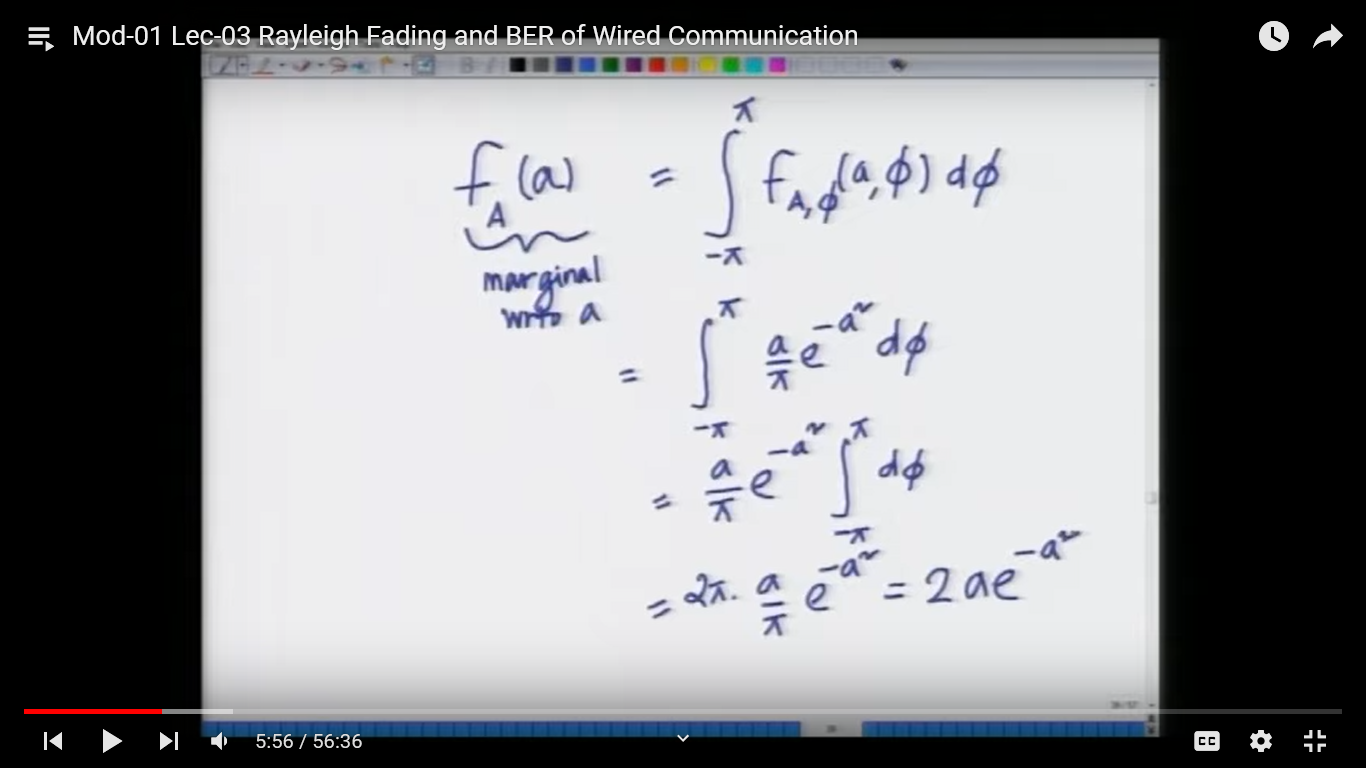 Mod-01 Lec-03 Rayleigh Fading and BER of Wired Communication
f_A(a) = ∫_{-π}^{π} f_{A,ϕ}(a,ϕ) dϕ
marginal
wrto a
= ∫_{-π}^{π} a/π e^{-a²} dϕ
= a/π e^{-a²} ∫_{-π}^{π} dϕ
= 2π. a/π e^{-a²} = 2ae^{-a²}
5:56 / 56:36
CC